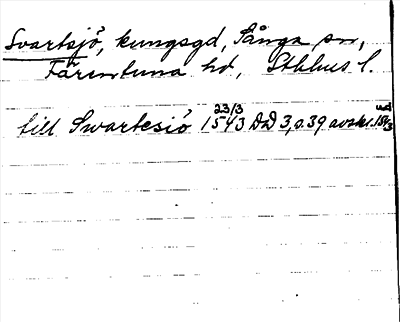 Svartsjö, kungsgd, Sånga sn,
Färentuna hd, Sthlms l.
till Swartesiö 23/3 1543 DD 3, s. 39 avskr.